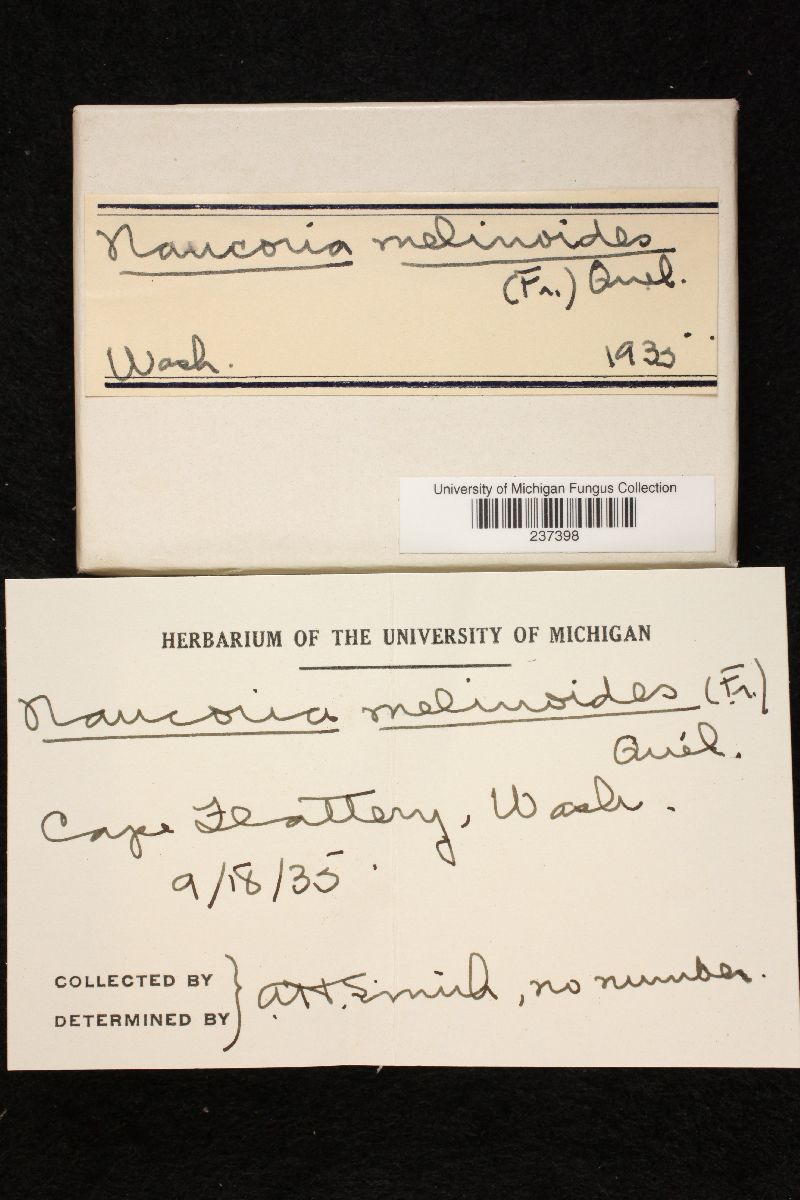 Naucoria melinoides
(Fr.) Quél.
Wash. 1935
University of Michigan Fungus Collection
237398
HERBARIUM OF THE UNIVERSITY OF MICHIGAN
Naucoria melinoides (Fr.)
Quél.
Cape Flattery, Wash.
9/18/35
COLLECTED BY
DETERMINED BY } A.H. Smith, no number.